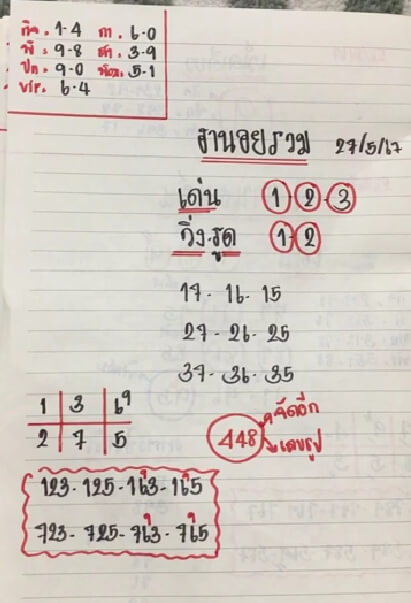 กิจ. 1-4 กา. 6-0
พิ. 9-8 สา. 3-9
ปก. 9-0 พัฒ. 5-1
6-4
ฮานอยรวม 27/5/67
เด่น 1-2-3
วิ่ง.รูด 1-2
17- 16- 15
27- 26- 25
37- 36- 35
1 3 6 9
2 7 5
448
เลขรูป
123 - 125 - 163 - 165
723 - 725 - 763 - 765